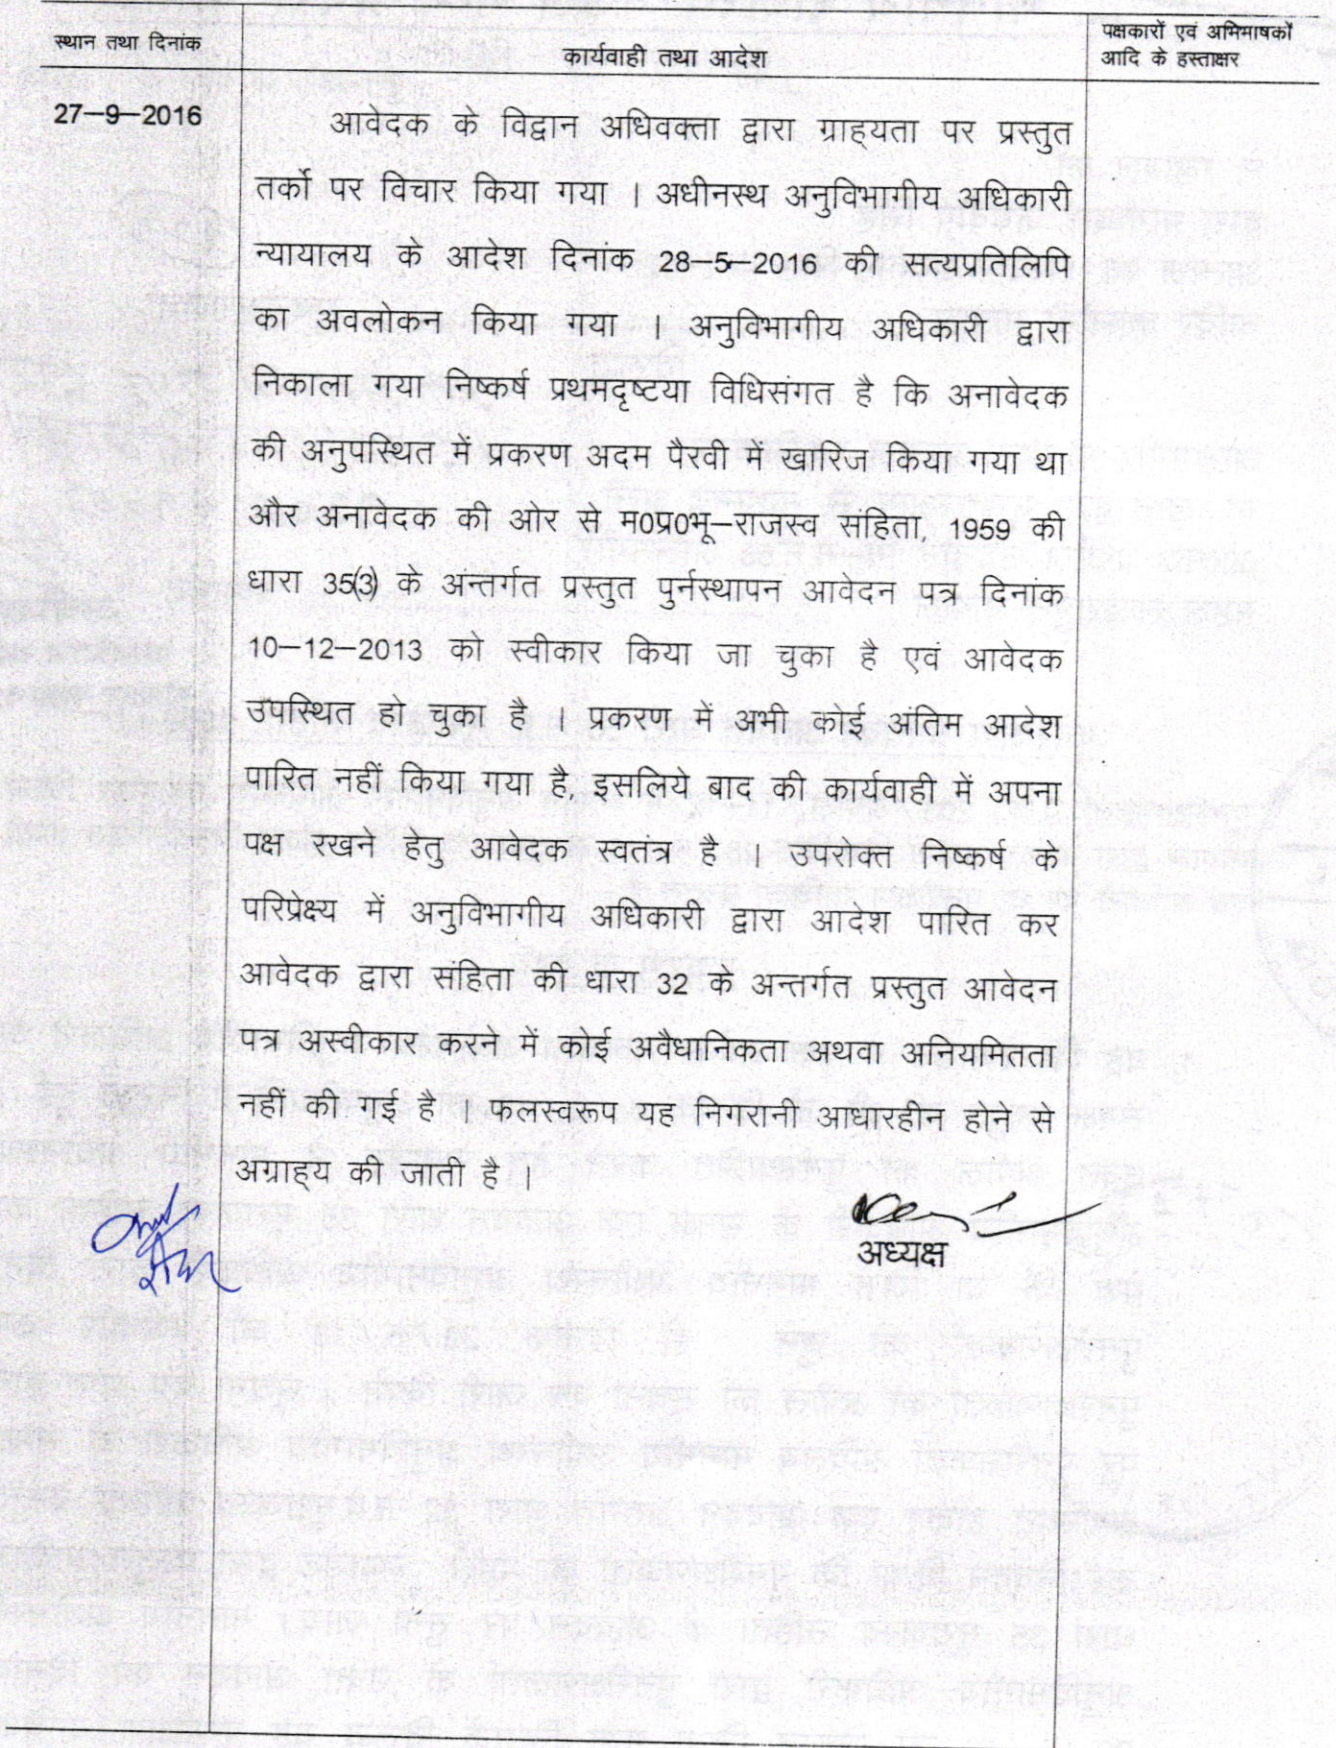 स्थान तथा दिनांक
कार्यवाही तथा आदेश
पक्षकारों एवं अभिमाषकों
आदि के हस्ताक्षर
27–9–2016
आवेदक के विद्वान अधिवक्ता द्वारा ग्राह्यता पर प्रस्तुत
तर्को पर विचार किया गया । अधीनस्थ अनुविभागीय अधिकारी
न्यायालय के आदेश दिनांक 28–5–2016 की सत्यप्रतिलिपि
का अवलोकन किया गया । अनुविभागीय अधिकारी द्वारा
निकाला गया निष्कर्ष प्रथमदृष्टया विधिसंगत है कि अनावेदक
की अनुपस्थित में प्रकरण अदम पैरवी में खारिज किया गया था
और अनावेदक की ओर से म0प्र0भू–राजस्व संहिता, 1959 की
धारा 35(3) के अंन्तर्गत प्रस्तुत पुर्नस्थापन आवेदन पत्र दिनांक
10–12–2013 को स्वीकार किया जा चुका है एवं आवेदक
उपस्थित हो चुका है । प्रकरण में अभी कोई अंतिम आदेश
पारित नहीं किया गया है, इसलिये बाद की कार्यवाही में अपना
पक्ष रखने हेतु आवेदक स्वतंत्र है । उपरोक्त निष्कर्ष के
परिप्रेक्ष्य में अनुविभागीय अधिकारी द्वारा आदेश पारित कर
आवेदक द्वारा संहिता की धारा 32 के अन्तर्गत प्रस्तुत आवेदन
पत्र अस्वीकार करने में कोई अवैधानिकता अथवा अनियमितता
नहीं की गई है । फलस्वरूप यह निगरानी आधारहीन होने से
अग्राह्य की जाती है ।
अध्यक्ष